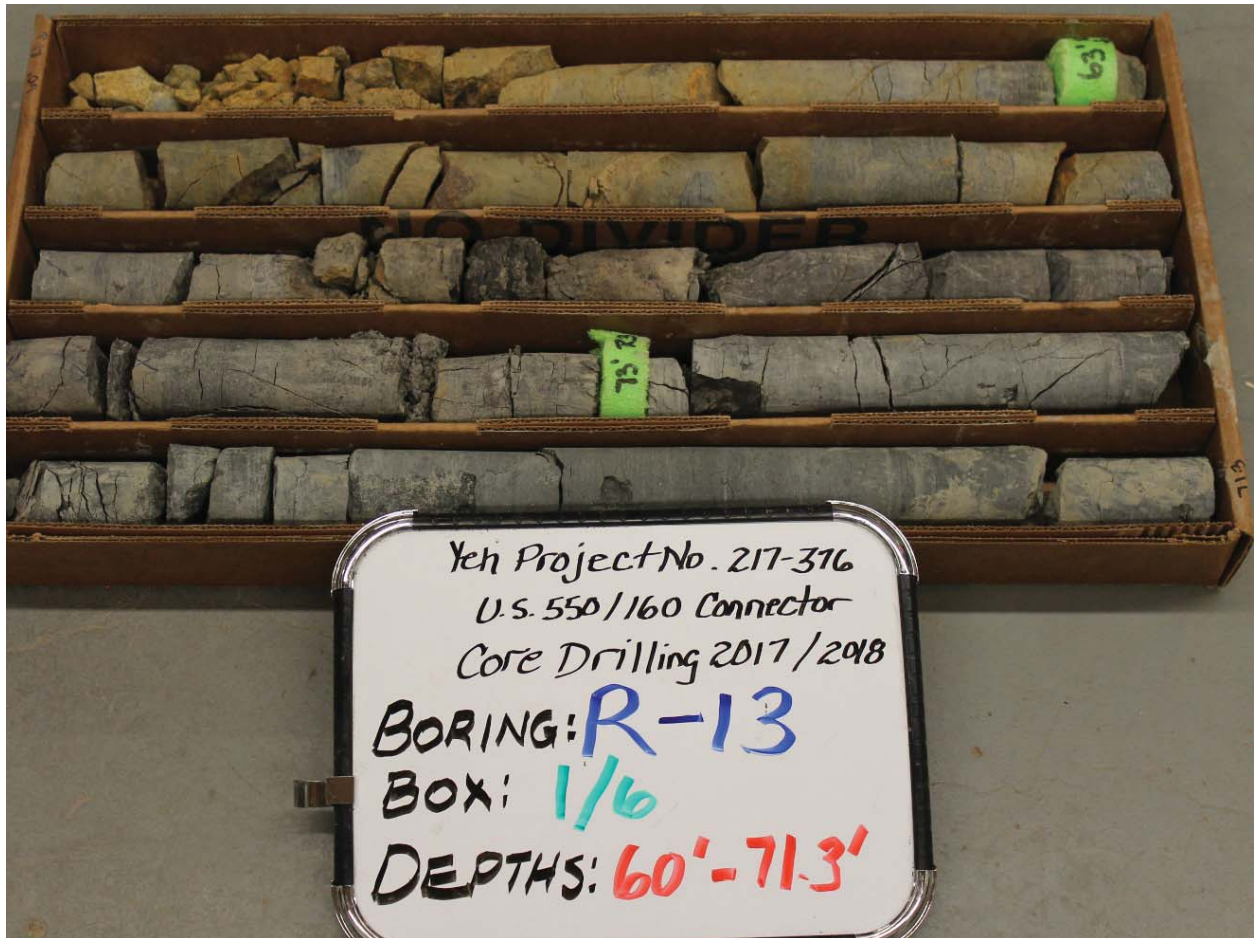 63'
NO DIVIDER
73'
71.3
Yeh Project No. 217-376
U.S. 550/160 Connector
Core Drilling 2017/2018
BORING: R-13
BOX: 1/6
DEPTHS: 60'-71.3'